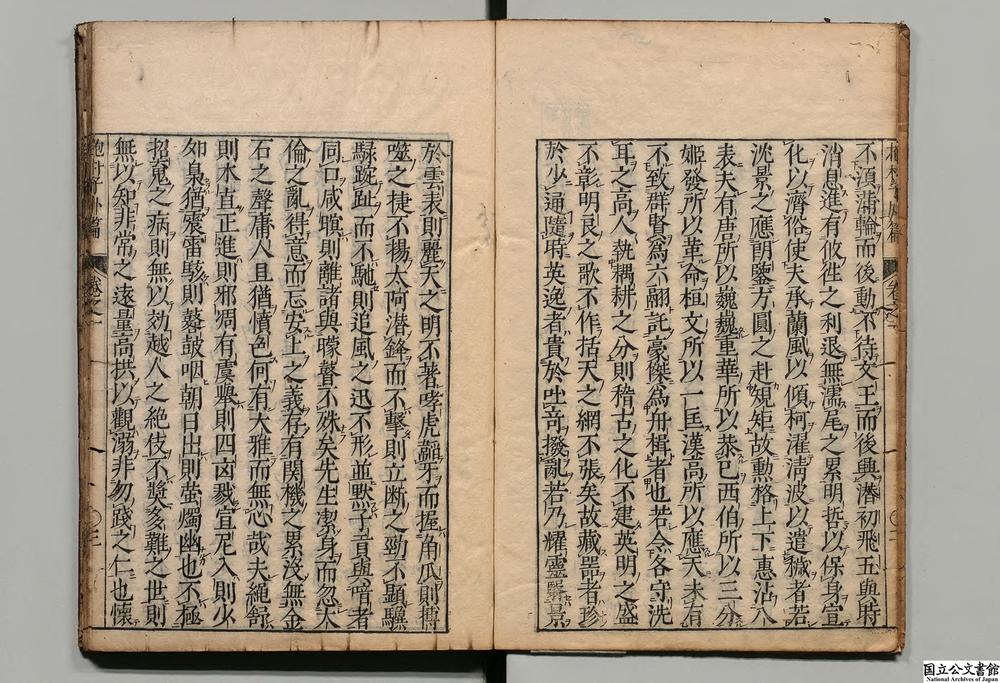 不須蒲輪而後動不待文王而後興潛初飛五與時
消息進有攸往之利退無濡尾之累明哲以保身宣
化以濟俗使夫承蘭風以傾柯濯清波以遣穢者若
沈景之應朗鑒方圓之赴規矩故勲格上下惠沾八
表夫有唐所以巍巍重華所以恭巳西伯所以三分
姬發所以革命桓文所以一匡漢高所以應天未有
不致群賢爲六翮託豪傑爲舟楫者也若令各守洗
耳之高人執耦耕之分則稽古之化不建英明之盛
不彰明良之歌不作括天之網不張矣故藏器者珍
於少通隨時英逸者貴於吐奇撥亂若乃耀靈翳景
於雲表則麗天之明不著哮虎韜牙而握爪則搏
噬之捷不揚太阿潛鋒而不擊則立断之勁不顯驥
騄踠趾而不馳則追風之迅不形並默則子音與喑者
同口咸瞑則離諸與矇瞽不殊矣先生潔身而忽大
倫之亂得意而忘安上之義存有関機之累沒無金
石之聲庸人且猶憤色何有大雅而無心哉夫繩舒
則木直正進則邪凋有虞舉則四凶戮宣尼入則少
卯梟猶震雷駭則鼛鼓咽朝日出則螢燭幽也不極
招䰟之病則無以効越人之絶伎不奬多難之世則
無以知非常之遠量高拱以觀溺非勿踐之仁也懷
抱朴子外篇 卷之一 三
国立公文書館
National Archives of Japan